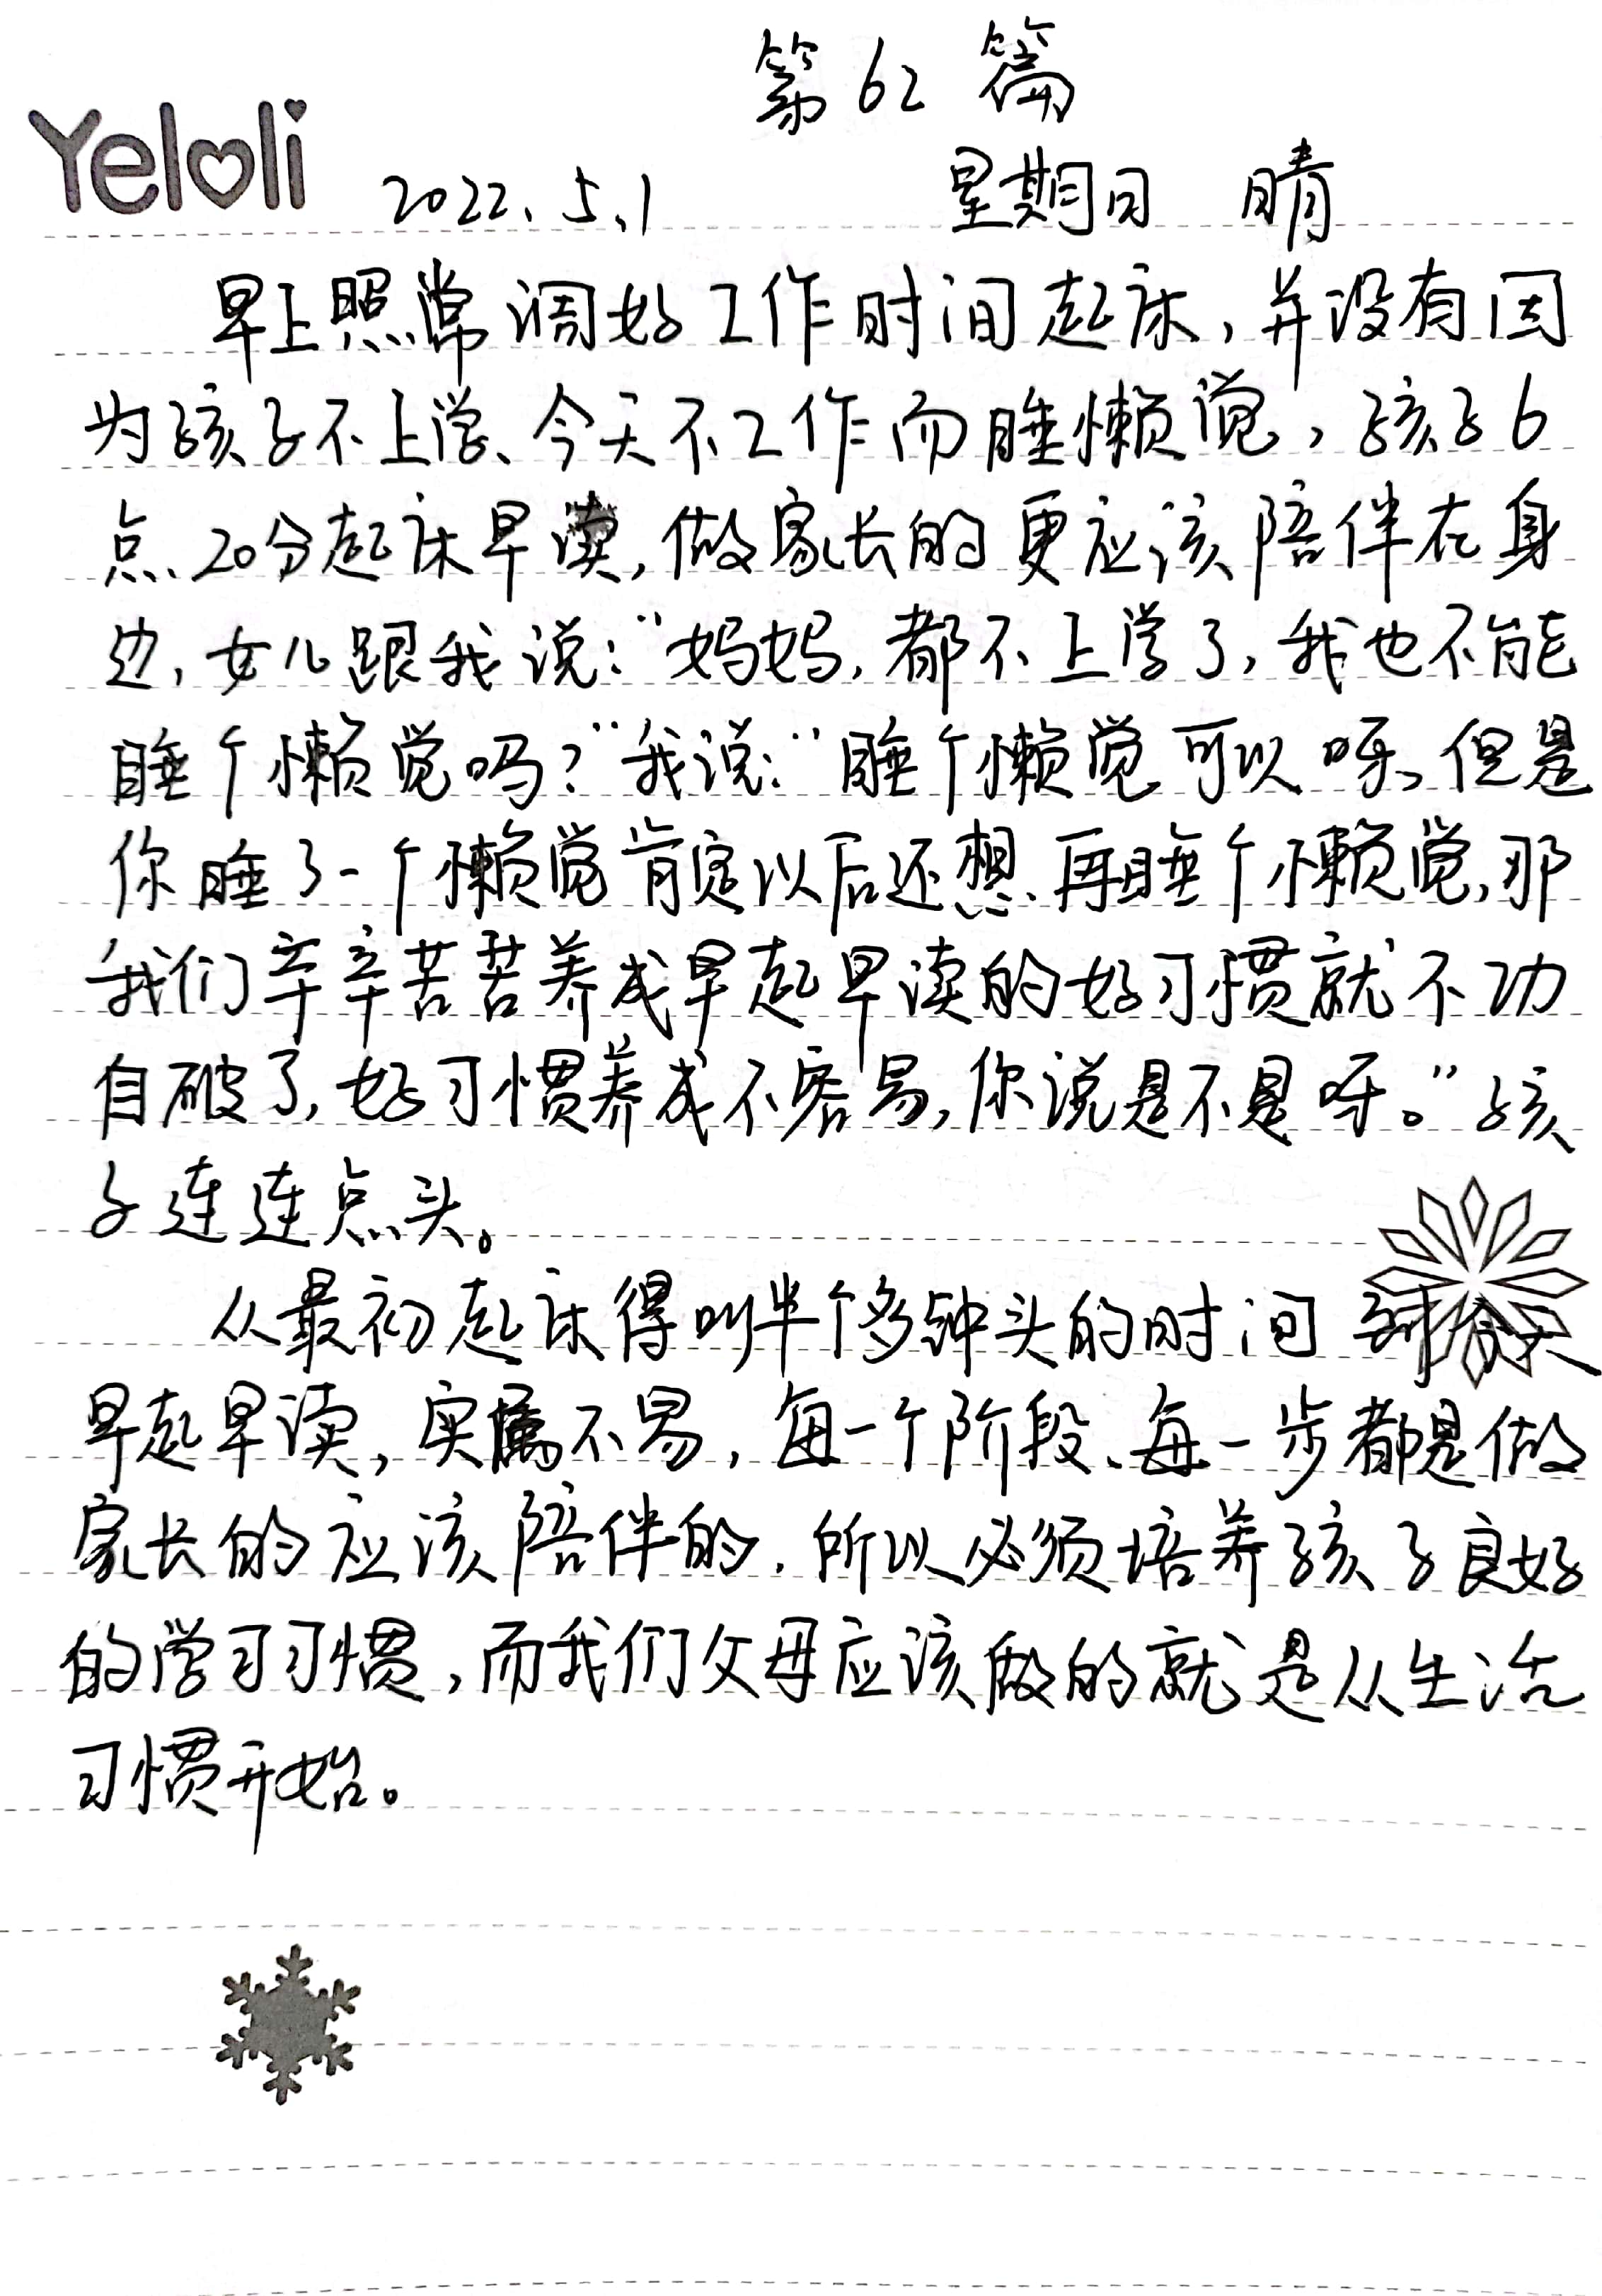 第62篇
Yeloli
2022.5.1 星期日 晴
早上照常调好工作时间起床,并没有因
为孩子不上学、今天不工作而睡懒觉,孩子6
点20分起床早读,做家长的更应该陪伴在身
边,女儿跟我说:“妈妈,都不上学了,我也不能
睡个懒觉吗?”我说:“睡个懒觉可以呀,但是
你睡了一个懒觉肯定以后还想再睡个懒觉,那
我们辛辛苦苦养成早起早读的好习惯就不功
自破了,好习惯养成不容易,你说是不是呀。”孩
子连连点头。
从最初起床得叫半个多钟头的时间到今天
早起早读,实属不易,每一个阶段、每一步都是做
家长的应该陪伴的.所以必须培养孩子良好
的学习习惯,而我们父母应该做的就是从生活
习惯开始。